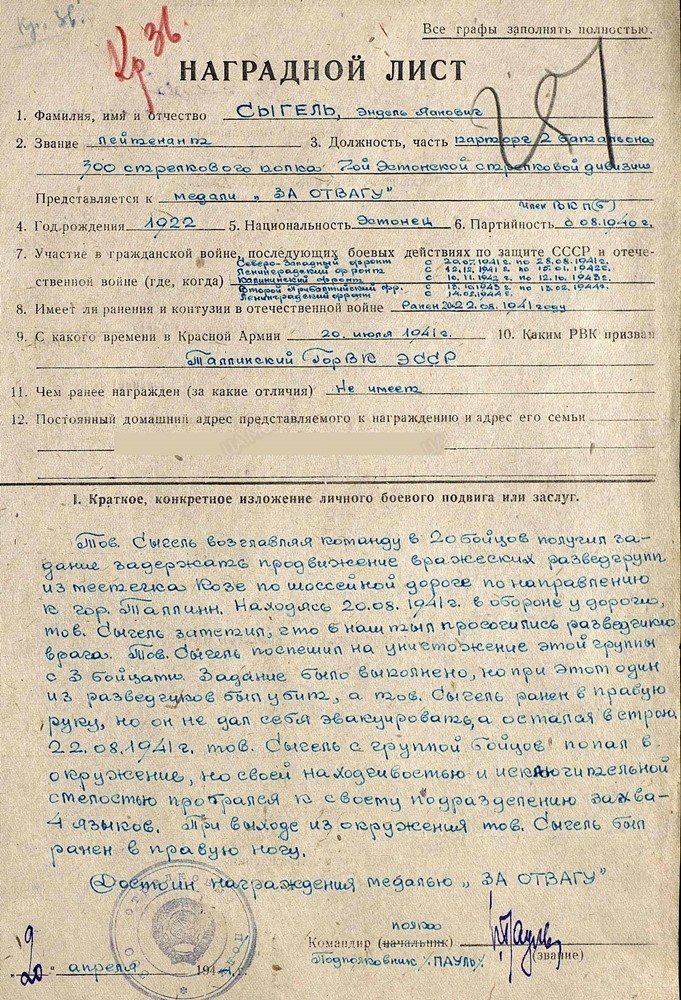 Кр. Зв.
Кр Зв.
Все графы заполнять полностью.
НАГРАДНОЙ ЛИСТ
1. Фамилия, имя и отчество СЫГЕЛЬ, Эндель Янович
2. Звание Лейтенант 3. Должность, часть парторг 2 батальона
300 стрелкового полка 7ой Эстонской стрелковой дивизии
Представляется к медали „ЗА ОТВАГУ"
Член ВКП(б)
4. Год рождения 1922 5. Национальность Эстонец 6. Партийность с 08.1940 г.
7. Участие в гражданской войне, последующих боевых действиях по защите СССР и отече-
Северо-Западный фронт с 20.07.1941г. по 28.08.1941г.
Ленинградский фронт с 12.12.1941 г. по 15.01.1942г.
ственной войне (где, когда) Калининский фронт с 10.11.1942 г. по 12.10.1943г.
Второй Прибалтийский фр. с 13.10.1943г. по 13.02.1944г.
Ленинградский фронт с 14.02.1944г.
8. Имеет ли ранения и контузии в отечественной войне Ранен 20 22.08.1941 году
9. С какого времени в Красной Армии 20. июля 1941 г. 10. Каким РВК призван
Таллинский ГорВК ЭССР
11. Чем ранее награжден (за какие отличия) Не имеет
12. Постоянный домашний адрес представляемого к награждению и адрес его семьи
I. Краткое, конкретное изложение личного боевого подвига или заслуг.
Тов. Сыгель возглавляя команду в 20 бойцов получил за-
дание задержать продвижение вражеских разведгрупп
из местечка Козе по шоссейной дороге по направлению
к гор. Таллинн. Находясь 20.08.1941г. в обороне у дороги,
тов. Сыгель заметил, что в наш тыл просочились разведчики
врага. Тов. Сыгель поспешил на уничтожение этой группы
с 3 бойцами. Задание было выполнено, но при этом один
из разведчиков был убит, а тов. Сыгель ранен в правую
руку, но он не дал себя эвакуировать, а остался в строю
22.08.1941 г. тов. Сыгель с группой бойцов попал в
окружение, но своей находчивостью и исключительной
смелостью пробрался к своему подразделению захва-
4 языков. При выходе из окружения тов. Сыгель был
ранен в правую ногу.
Достоин награждения медалью „ЗА ОТВАГУ"
полка
Командир (начальник)
Подполковник /ПАУЛЬ/ (звание)
20 апреля 1944 г.